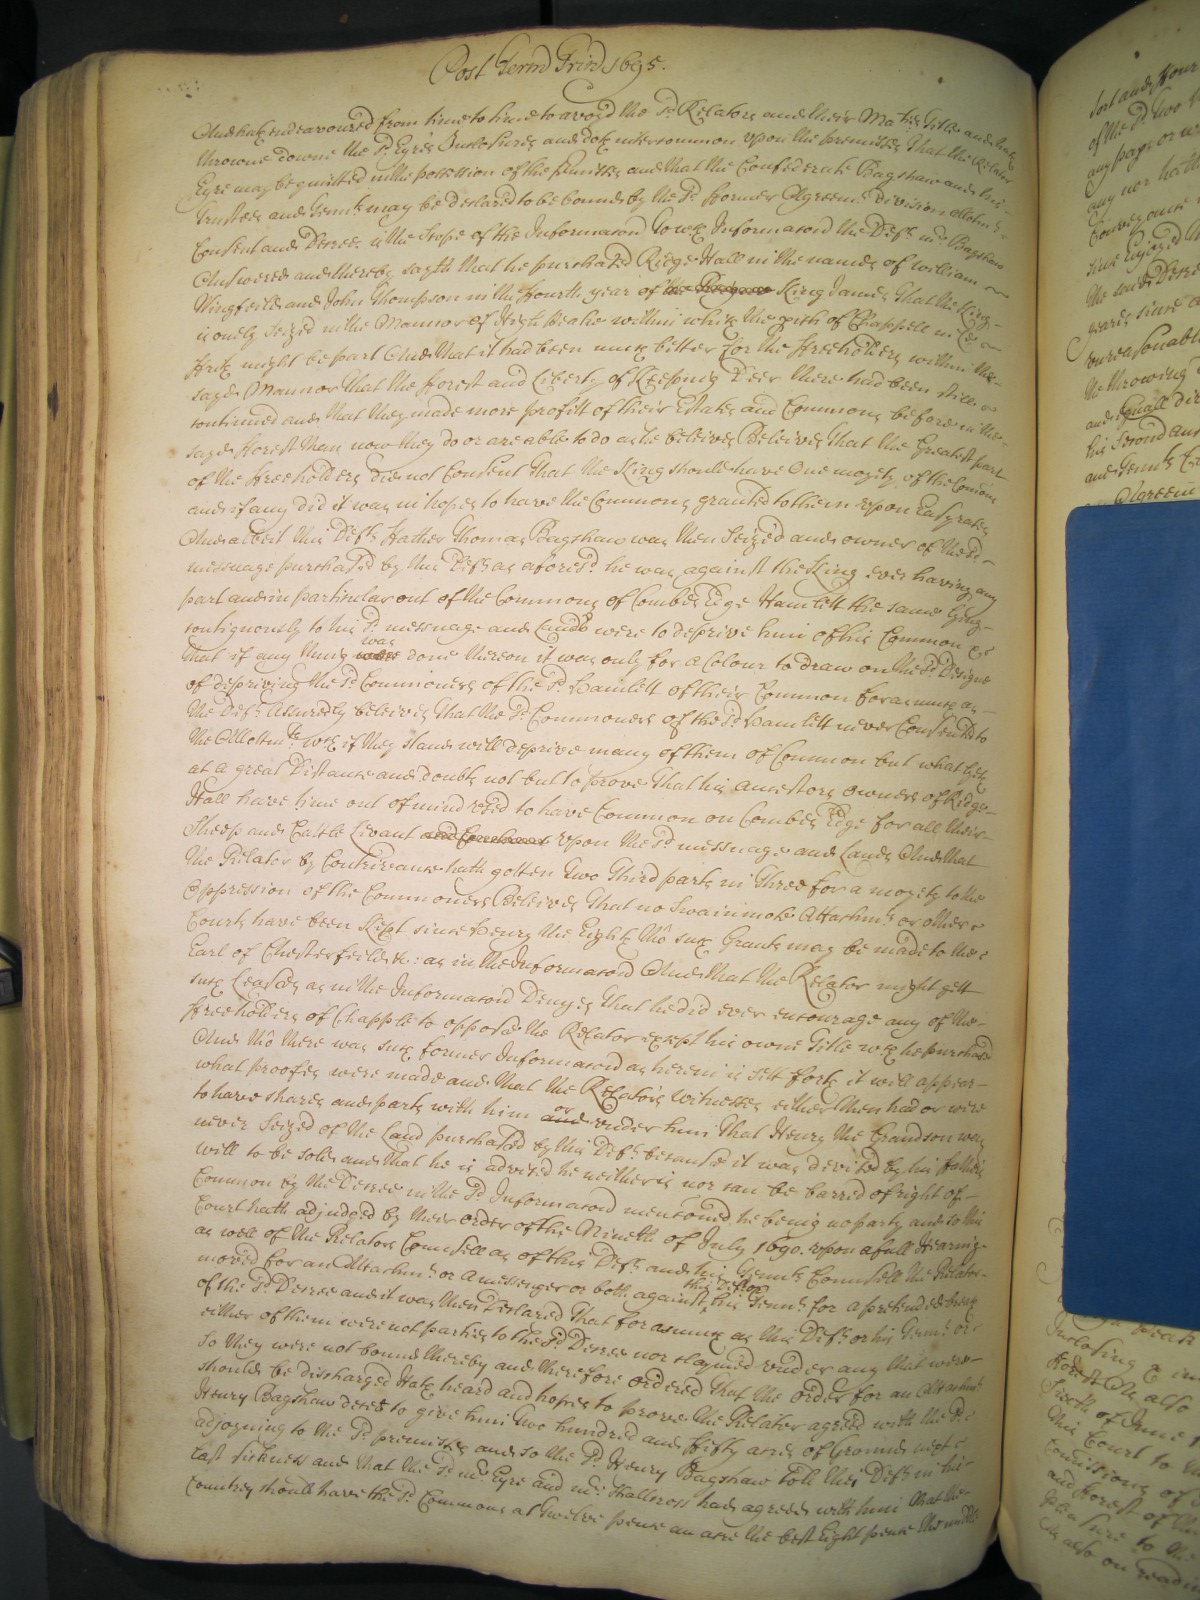 Post Term Trin 1695.
And hath endeavoured from time to time to avoyd the sd Relators and their Maties Title and hath
throwne downe the sd Eyres Inclosures and doth intercommon upon the premisses That the Relator
Eyre may be quitted in the possession of the premisses and that the Confederate Bagshaw and his
Trustees and Tennts may be declared to be bound by the sd former Agreemt Division Allotmt
Consent and Decree is the Scope of the Informacon To wch Informacon the Deft mr Bagshaw
Answered and thereby sayth that he purchased Ridge Hall in the names of William
Wingfeild and John Thompson in the fourth year of King James That the King
is onely seized in the Mannor of High Peake within which the pish of Chappell in le
Frith might be part And that it had been much better for the Freeholders within the
sayd Mannor that the forest and Liberty of Keeping Deer there had been still
continued and that they made more profitt of their Estates and Commons before in the
sayd Forest than now they do or are able to do as he beleives Beleives that the Greatest part
of the Freeholders did not Consent that the King should have One moyety of the Comons
and if any did it was in hopes to have the Commons granted to them upon Easy rates
And albeit this Defts Father Thomas Bagshaw was then Seized and owner of the sd
messuage purchased by this Deft as aforesd he was against the King ever having any
part and in particular out of the Commons of Combes Edge Hamlett the same lying
contiguously to his sd messuage and Lands were to deprive him of his Common &c
that if any thing was done thereon it was only for a Colour to draw on the sd Designe
of depriving the sd Commoners of the sd Hamlett of their Common forasmuch as
the Deft Assuredly beleives that the sd Commoners of the sd Hamlett never Consented to
the Allotmts wch if they stand will deprive many of them of Common but what lyes
at a great Distance and doubts not but to prove that his Ancestors owners of Ridge
Hall have time out of mind used to have Common on Combes Edge for all their
Sheep and Cattle Levant upon the sd messuage and Lands And that
the Relator by Contrivance hath gotten two third parts in three for a moyety to the
Oppression of the Commoners Beleives that no Swainmote Attachmt or other
Courts have been Kept since Henry the Eighth tho such Grants may be made to the
Earl of Chesterfeild &c: as in the Informacon And that the Relator might gett
such Leases as in the Informacon Denyes that he did ever encourage any of the
Freeholders of Chapple to oppose the Relator except his owne Title wch he purchased
And tho there was such former Informacon as herein is sett forth it will appear
what proofes were made and that the Relators Witnesses either then had or were
to have shares and parts with him or under him That Henry the Grandson was
never Seized of the Land purchased by this Deft because it was devised by his fathers
will to be sold and that he is advised he neither is nor can be barred of right of
Common by the Decree in the sd Informacon mencioned he being no party and so this
Court hath adjudged by their order of the Nineth of July 1690. upon a full Hearing
as well of the Relators Counsell as of this Deft and his Tennts Counsell the Relator
moved for an Attachmt or a messenger or both against this Deft or his Tennts for a pretended breach
of the sd Decree and it was then Declared That forasmuch as this Deft or his Tennts or
either of them were not parties to the sd Decree nor claymed under any that were
So they were not bound thereby and therefore ordered that the order for an Attachmt
should be discharged Hath heard and hopes to prove the Relator agreed with the sd
Henry Bagshaw decd to give him Two hundred and fifty acres of Ground next
adjoyning to the sd premisses and so the sd Henry Bagshaw told this Deft in his
last sickness and that the sd mr Eyre and mr Shallcross had agreed with him that the
Countrey should have the sd Commons at Twelve pence an acre the best Eight pence the middle